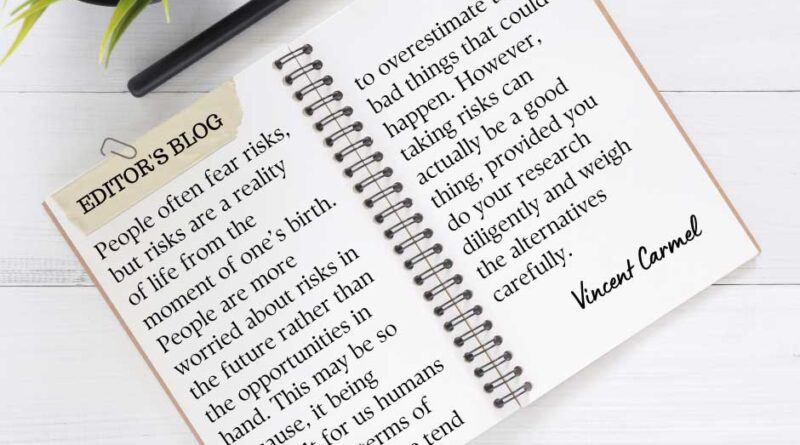 EDITOR'S BLOG
People often fear risks,
but risks are a reality
of life from the
moment of one's birth.
People are more
worried about risks in
the future rather than
the opportunities in
hand. This may be so
it being
for us humans
terms of
tend
to overestimate
bad things that could
happen. However,
taking risks can
actually be a good
thing, provided you
do your research
diligently and weigh
the alternatives
carefully.
Vincent Carmel